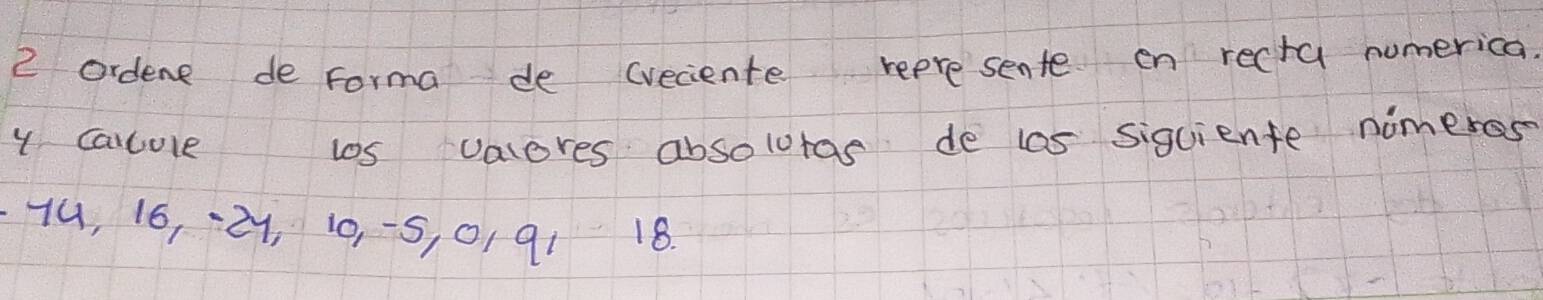 2 Ordene de Forma de Creciente represente en recta numerica.
y calcule los valores absolutas de las siguiente números
-14, 16, -24, 10, -5, 0, 9, 18.